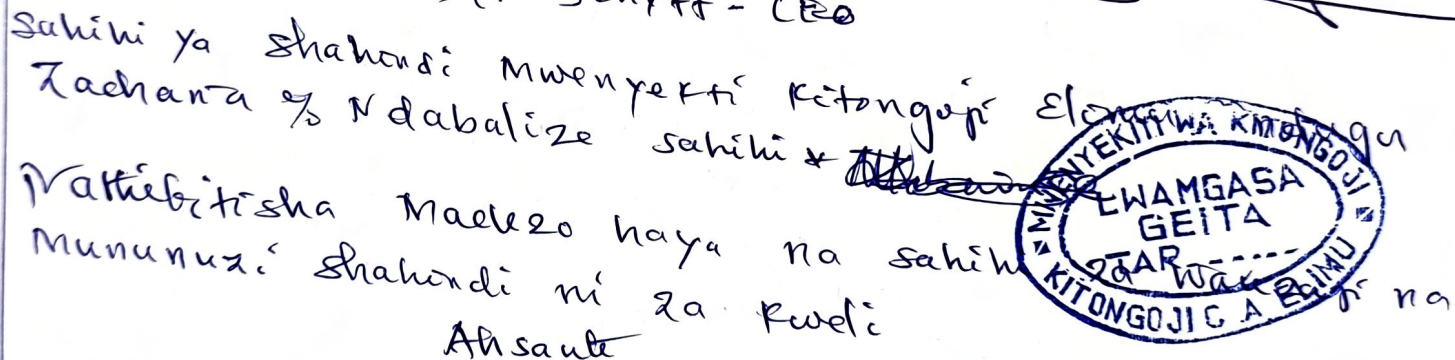 - CEO
Sahihi ya shahondi Mwenyekti Kitongoji
Zacharia s/o Ndabalize sahihi
Nathibitisha Maelezo haya na sahihi za Wauzaji na
Mununuzi shahondi ni za kweli
Ahsante
MWENYEKITI WA KITONGOJI
LWAMGASA
GEITA
TAR ------
KITONGOJI C A ELIMU